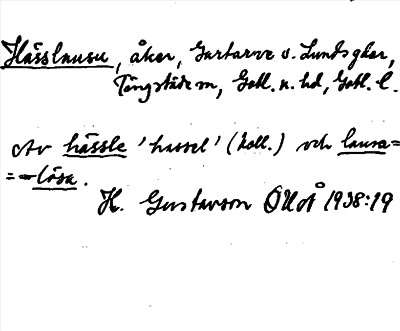 Hässlausu, åker, Gartarve o. Lundsgår,
Tingstäde sn, Gotl. n. hd, Gotl. l.
Av hässle 'hassel' (koll.) och lausa=
=-lösa.
H. Gustavson OUoÅ 1938:19